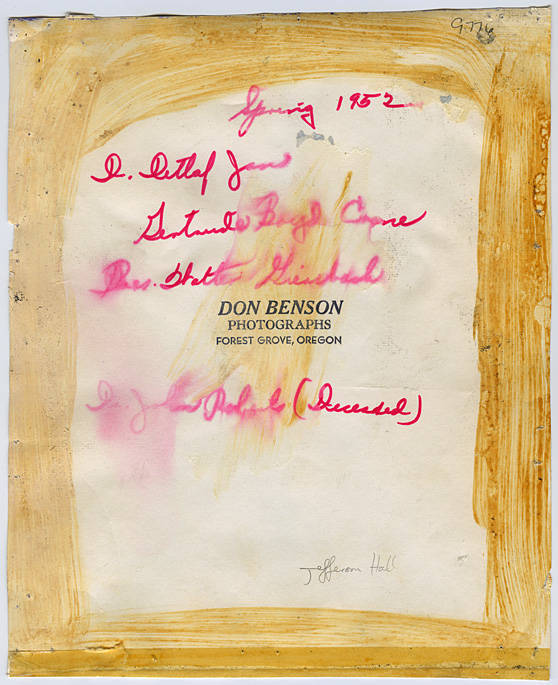 Spring 1952
D. Detlof
Gertrude Boyd Crane
Pres. Walter Giersbach
DON BENSON
PHOTOGRAPHS
FOREST GROVE, OREGON
Dr. John Roberts (Deceased)
Jefferson Hall